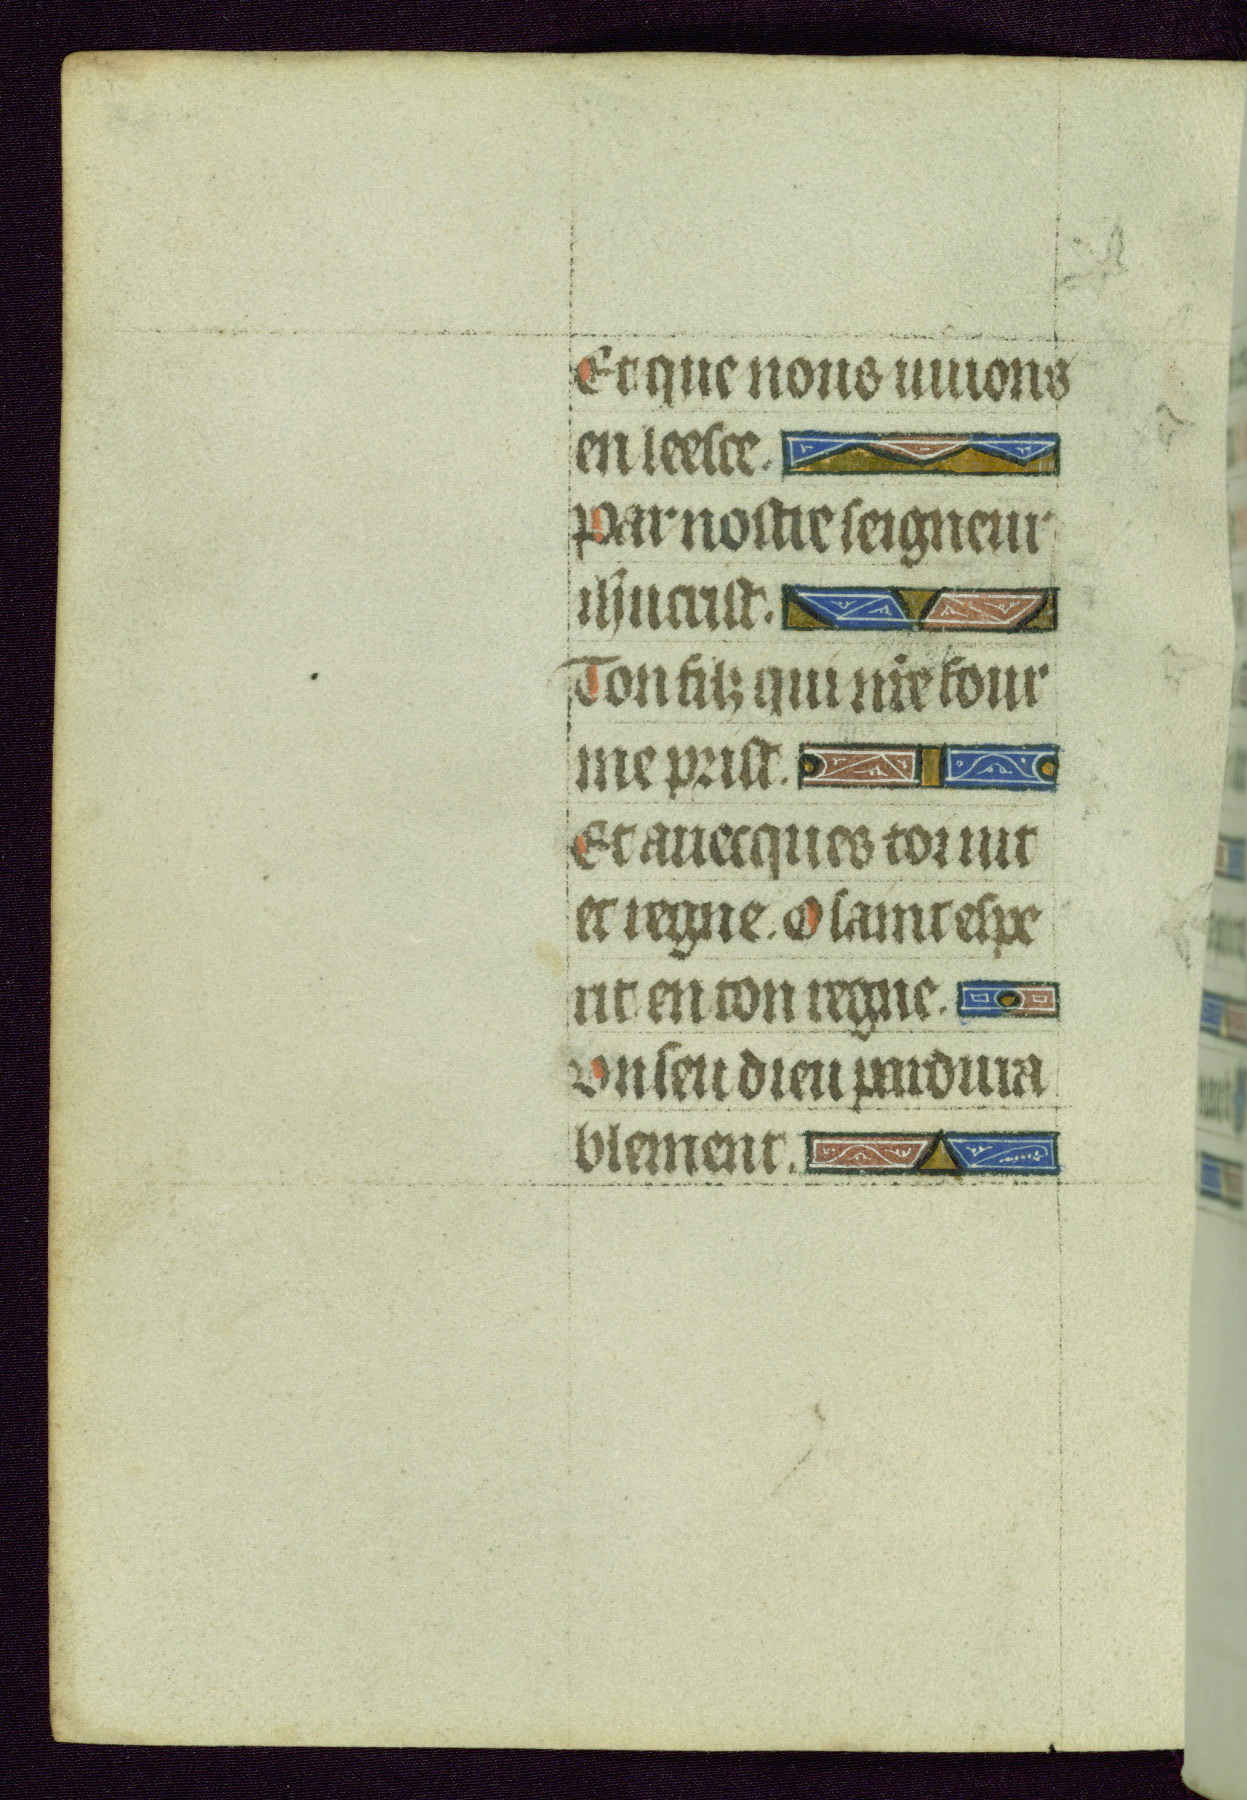 Et que nous uiuions
en leesce.
Par nostre seigneur
ihucrist.
Ton filz qui n̄re four
me prist.
Et auecques toi uit
et regne. O saint espe
rit en ton regne.
Vn seu dieu pardura
blement.